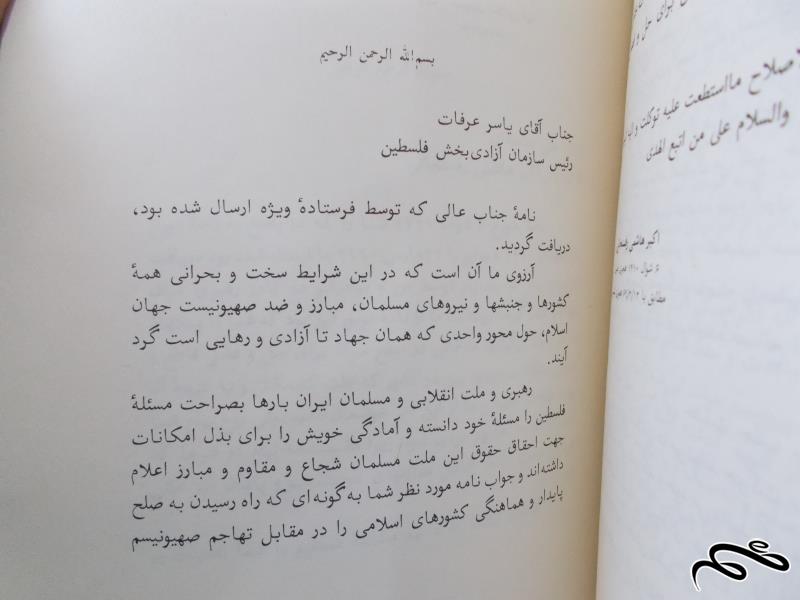 بسم‌الله الرحمن الرحیم
جناب آقای یاسر عرفات
رئیس سازمان آزادی‌بخش فلسطین
نامهٔ جناب عالی که توسط فرستادهٔ ویژه ارسال شده بود،
دریافت گردید.
آرزوی ما آن است که در این شرایط سخت و بحرانی همهٔ
کشورها و جنبشها و نیروهای مسلمان، مبارز و ضد صهیونیست جهان
اسلام، حول محور واحدی که همان جهاد تا آزادی و رهایی است گرد
آیند.
رهبری و ملت انقلابی و مسلمان ایران بارها بصراحت مسئلهٔ
فلسطین را مسئلهٔ خود دانسته و آمادگی خویش را برای بذل امکانات
جهت احقاق حقوق این ملت مسلمان شجاع و مقاوم و مبارز اعلام
داشته‌اند و جواب نامه مورد نظر شما به گونه‌ای که راه رسیدن به صلح
پایدار و هماهنگی کشورهای اسلامی را در مقابل تهاجم صهیونیسم
اصلاح مااستطعت علیه توکلت و
والسلام علی من اتبع الهدی
اکبر هاشمی
شوال ۱۴۱۰
مطابق با